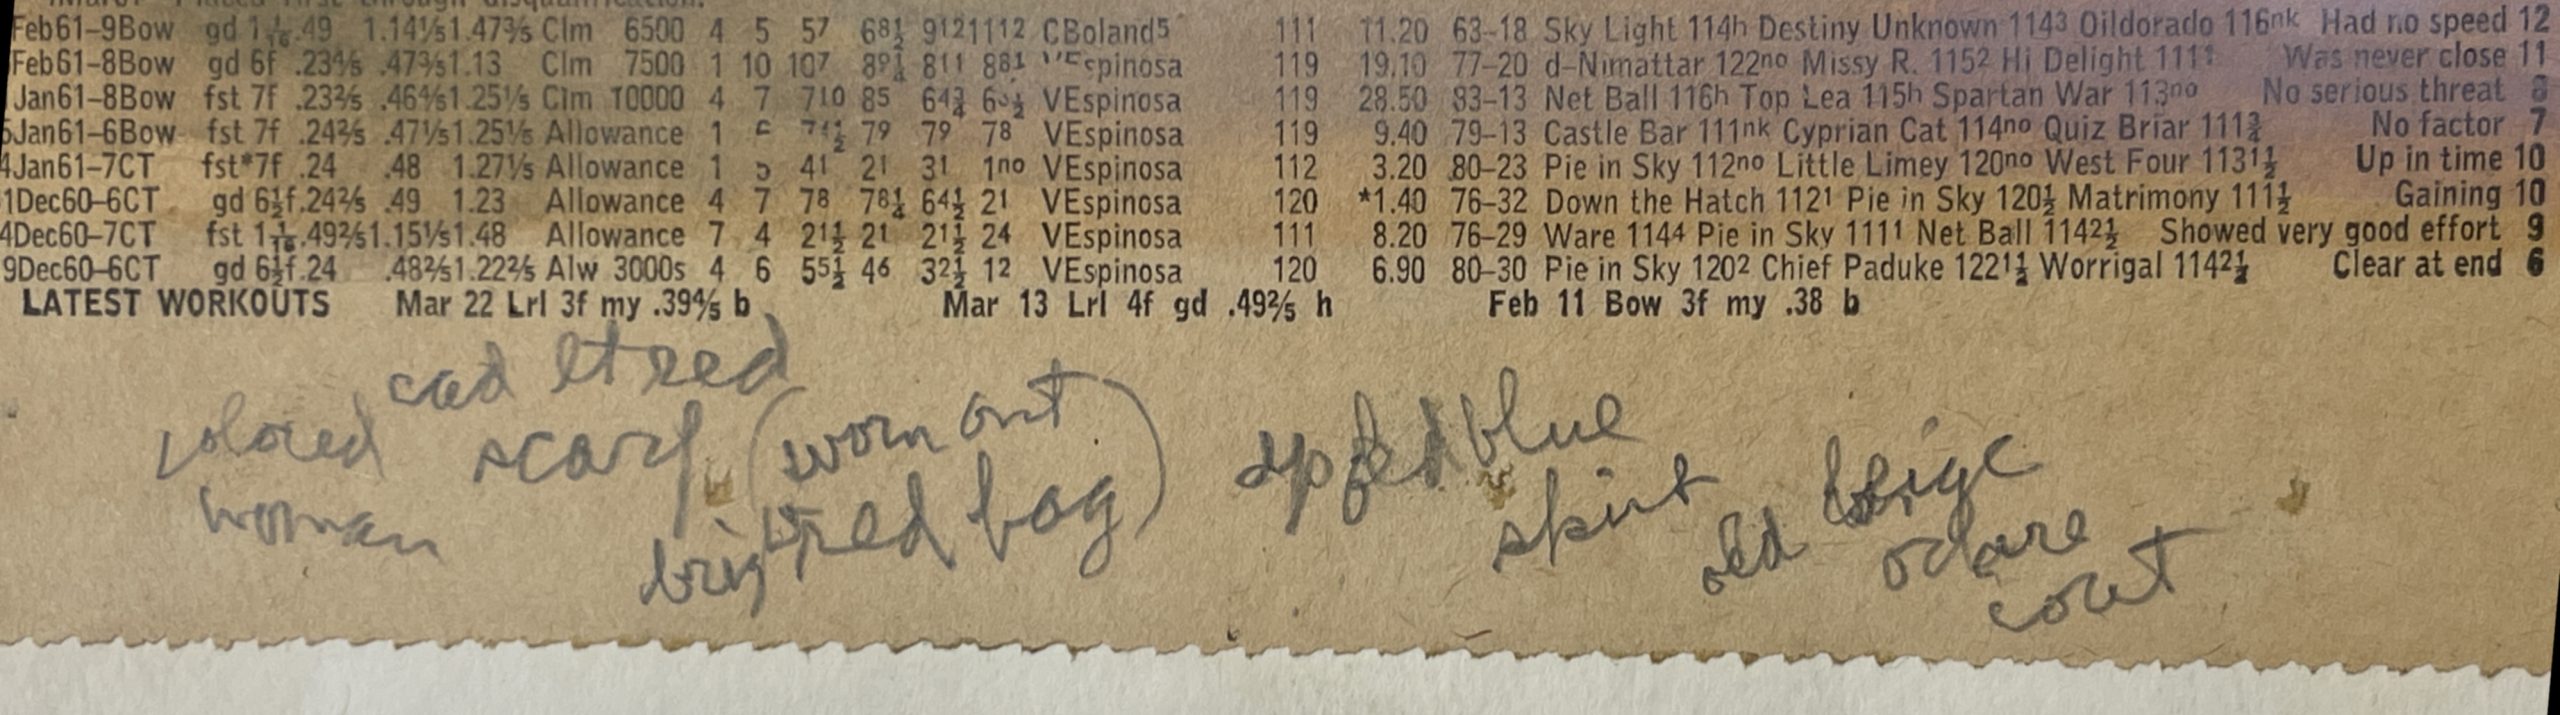 Feb61-9Bow gd 1 1/16 .49 1.14⅕1.47⅗ Clm 6500 4 5 5⁷ 6⁸½ 9¹²11¹² CBoland⁵ 111 11.20 63-18 Sky Light 114ʰ Destiny Unknown 114³ Oildorado 116ⁿᵏ Had no speed 12
Feb61-8Bow gd 6f .23⅘ .47⅗1.13 Clm 7500 1 10 10⁷ 8⁹¼ 8¹¹ 8⁸¹ Espinosa 119 19.10 77-20 d-Nimattar 122ⁿᵒ Missy R. 115² Hi Delight 111¹ Was never close 11
Jan61-8Bow fst 7f .23⅖ .46⅘1.25⅕ Clm 10000 4 7 7¹⁰ 8⁵ 6⁴¾ VEspinosa 119 28.50 83-13 Net Ball 116ʰ Top Lea 115ʰ Spartan War 113ⁿᵒ No serious threat 8
Jan61-6Bow fst 7f .24⅖ .47⅕1.25⅕ Allowance 1 7⁹ 7⁹ 7⁸ VEspinosa 119 9.40 79-13 Castle Bar 111ⁿᵏ Cyprian Cat 114ⁿᵒ Quiz Briar 111¾ No factor 7
4Jan61-7CT fst*7f .24 .48 1.27⅕ Allowance 1 5 4¹ 2¹ 3¹ 1ⁿᵒ VEspinosa 112 3.20 80-23 Pie in Sky 112ⁿᵒ Little Limey 120ⁿᵒ West Four 113¹½ Up in time 10
1Dec60-6CT gd 6½f.24⅖ .49 1.23 Allowance 4 7 7⁸ 7⁸¼ 6⁴½ 2¹ VEspinosa 120 *1.40 76-32 Down the Hatch 112¹ Pie in Sky 120½ Matrimony 111½ Gaining 10
4Dec60-7CT fst 1 1/16 .49⅖1.15⅕1.48 Allowance 7 4 2¹½ 2¹ 2¹½ 2⁴ VEspinosa 111 8.20 76-29 Ware 114⁴ Pie in Sky 111¹ Net Ball 114²½ Showed very good effort 9
9Dec60-6CT gd 6½f.24 .48⅖1.22⅖ Alw 3000s 4 6 5⁵½ 4⁶ 3²½ 1² VEspinosa 120 6.90 80-30 Pie in Sky 120² Chief Paduke 122¹½ Worrigal 114²½ Clear at end 6
LATEST WORKOUTS Mar 22 Lrl 3f my .39⅘ b Mar 13 Lrl 4f gd .49⅖ h Feb 11 Bow 3f my .38 b
colored
woman
cad lt red
scarf
(worn out
bright red bag)
blue
skirt
old beige
coat